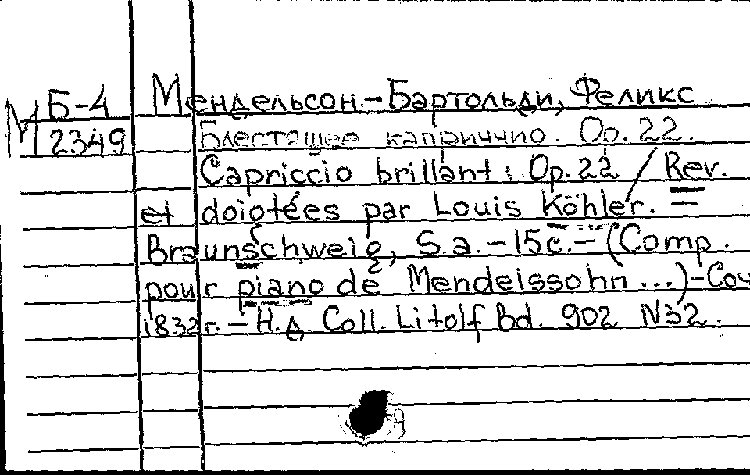 Б-4 Мендельсон-Бартольди, Феликс
М 2349 Блестящее каприччио. Op. 22.
Capriccio brillant: Op. 22 / Rev.
et doigtées par Louis Köhler. —
Braunschweig, S.a. – 15c. – (Comp.
pour piano de Mendelssohn...) – Соч
1832г. – Н.д. Coll. Litolf Bd. 902 N32.